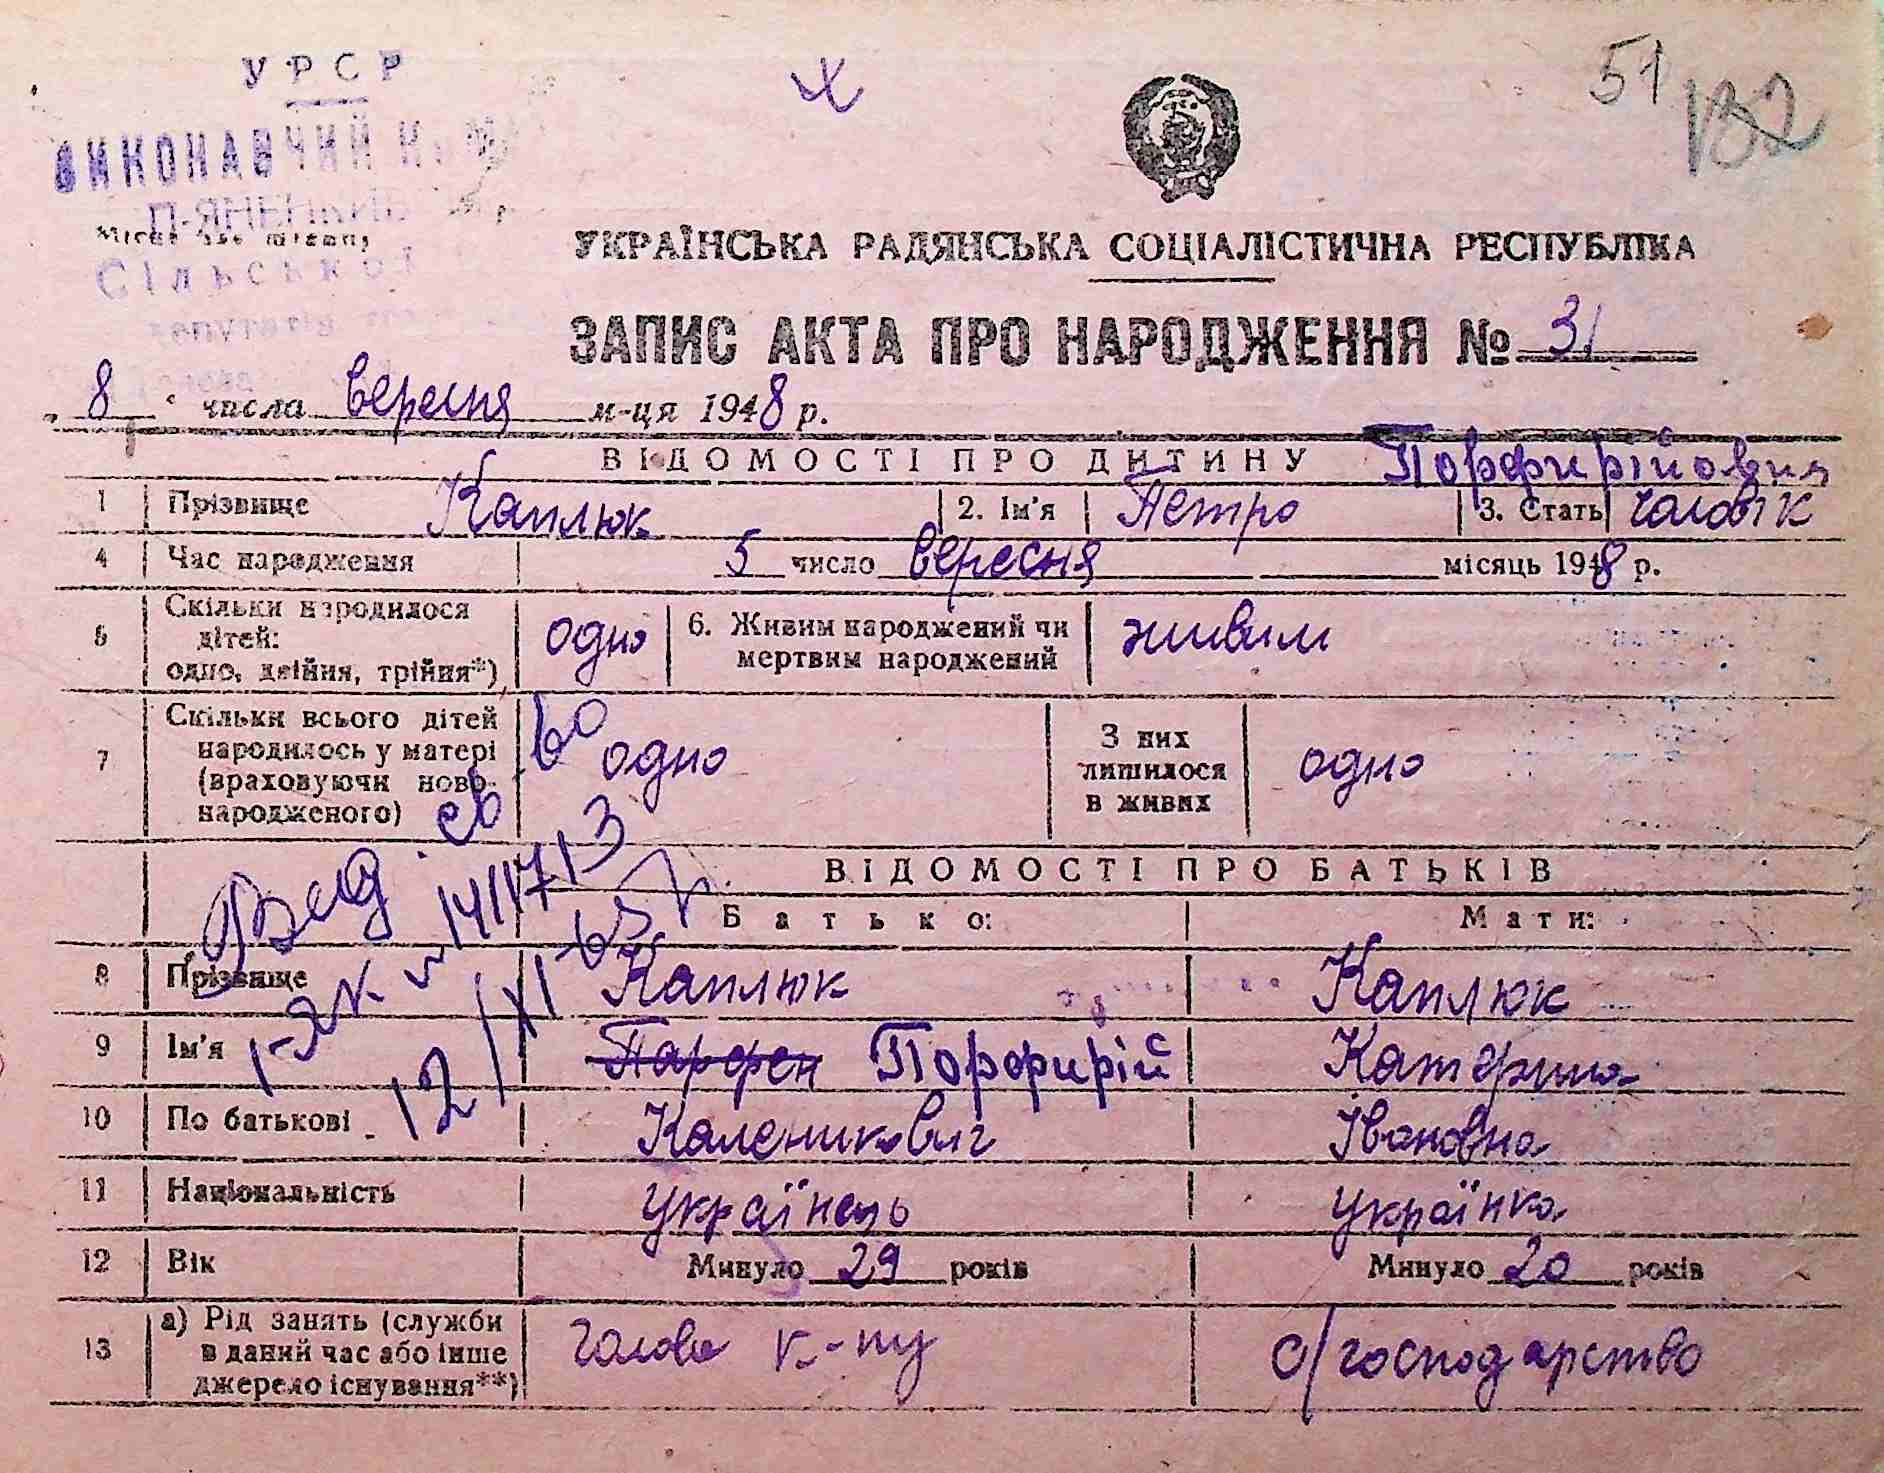 УРСР
51 132
ВИКОНАВЧИЙ
П-ЯНЕНКИВ
Сільської
депутатів
УКРАЇНСЬКА РАДЯНСЬКА СОЦІАЛІСТИЧНА РЕСПУБЛІКА
ЗАПИС АКТА ПРО НАРОДЖЕННЯ № 31
„8“ числа вересня м-ця 1948 р.
ВІДОМОСТІ ПРО ДИТИНУ Порфирійович
1 Прізвище Каплюк 2. Ім'я Петро 3. Стать чоловік
4 Час народження 5 число вересня місяць 1948 р.
5 Скільки народилося дітей: одно, двійня, трійня*) одно 6. Живим народжений чи мертвим народжений живим
7 Скільки всього дітей народилось у матері (враховуючи ново-народженого) одно З них лишилося в живих одно
ВІДОМОСТІ ПРО БАТЬКІВ
Батько: Мати:
8 Прізвище Каплюк Каплюк
9 Ім'я Парфен Порфирій Катерина
10 По батькові Каленикович Івановна
11 Національність українець українка
12 Вік Минуло 29 років Минуло 20 років
13 а) Рід занять (служби в даний час або інше джерело існування**) голова к-пу с/господарство